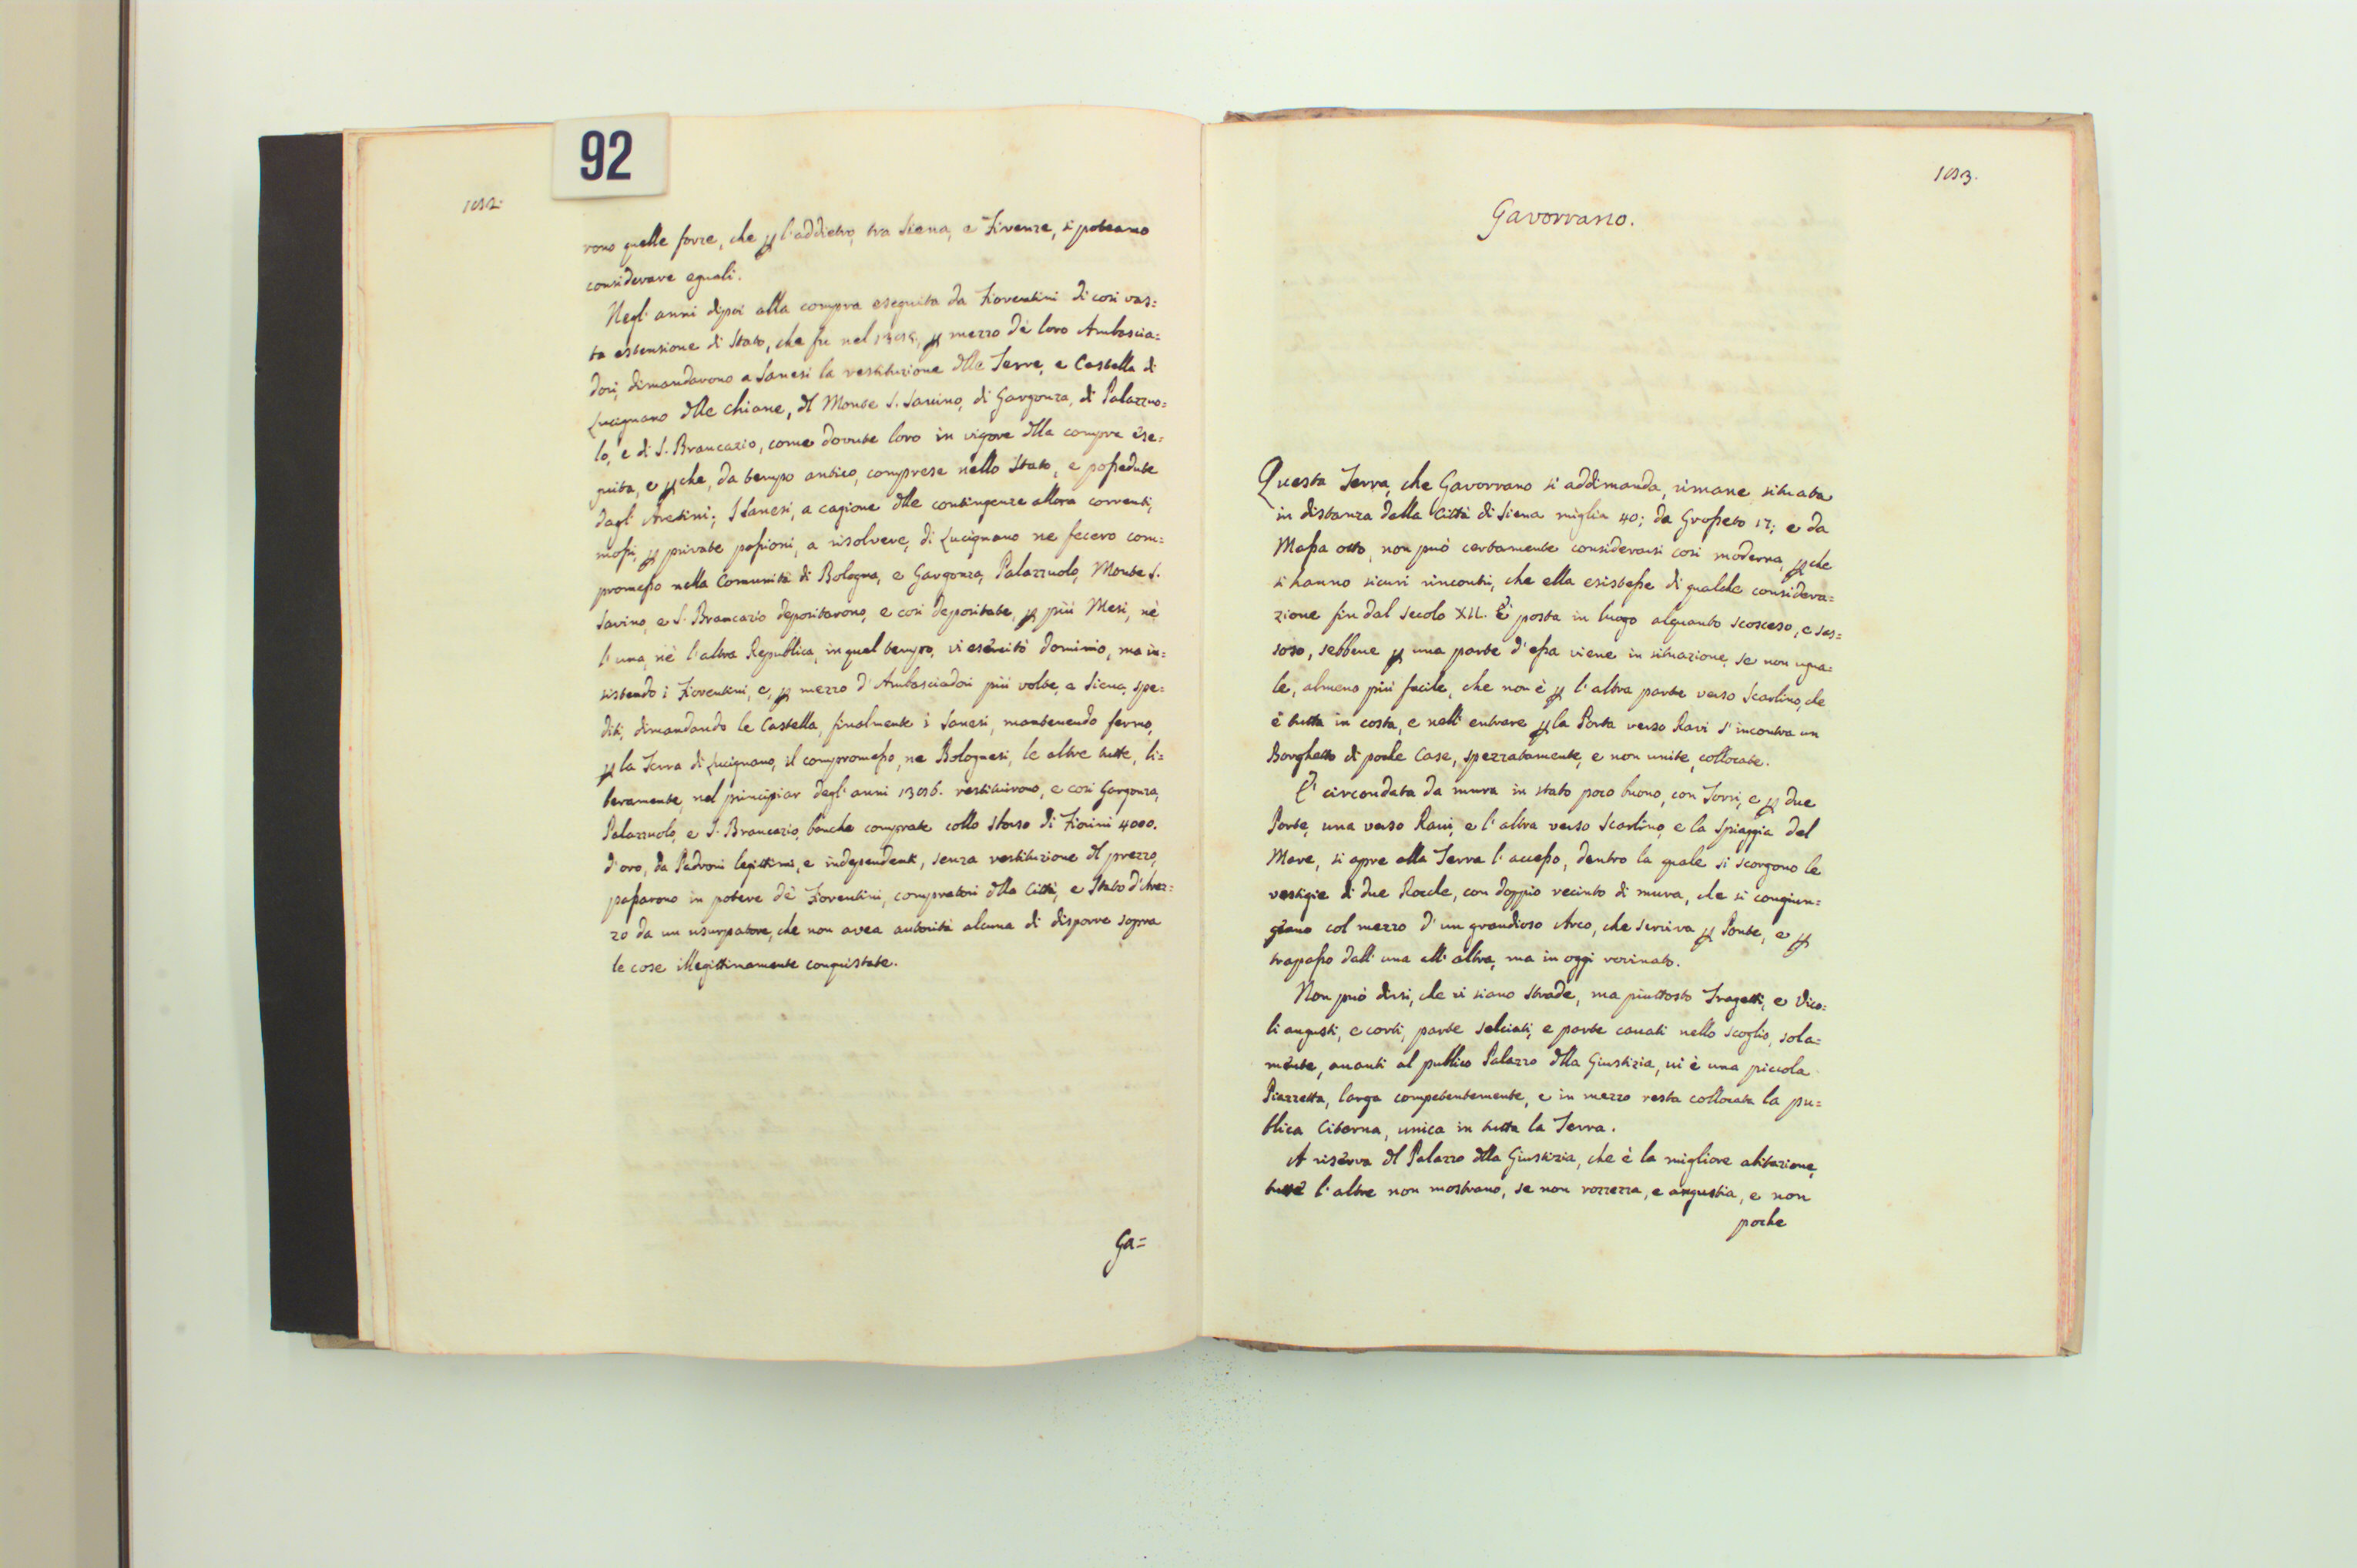 92
rono quelle forze, che ꝑ l'addietro, tra Siena, e Firenze, si poteano
considerare eguali.
Negl' anni dipoi alla compra eseguita da Fiorentini di così vas=
ta estensione di Stato, che fu nel ꝑ mezzo de loro Ambascia=
dori, dimandarono a Sanesi la restituzione dlle Terre, e Castella di
Lucignano dlle Chiane, dl Monte S. Savino, di Gargonza, di Palazzuo=
lo, e di S. Brancazio, come dovute loro in vigore dlla compra ese=
guita, e ꝑche, da tempo antico, comprese nello Stato, e possedute
dagl' Aretini; I Sanesi, a cagione dlle contingenze allora correnti,
mossi, ꝑ private passioni, a risolvere, di Lucignano ne fecero com=
promesso nella Comunità di Bologna, e Gargonza, Palazzuolo, Monte S.
Savino, e S. Brancazio depositarono, e così depositate, ꝑ più Mesi, nè
l'una, nè l'altra Republica, in quel tempo, vi esercitò dominio, ma in=
sistendo i Fiorentini, e, ꝑ mezzo d'Ambasciadori più volte, a Siena, spe=
diti, dimandando le Castella, finalmente i Sanesi, mantenendo fermo,
ꝑ la Terra di Lucignano, il compromesso, ne Bolognesi, le altre tutte, li=
beramente, nel principiar degl' anni 1386. restituirono, e così Gargonza,
Palazzuolo, e S. Brancazio, benche comprate collo sborso di Fiorini 4000.
d'oro, da Padroni legittimi, e independenti, senza restituzione dl prezzo,
passarono in potere de' Fiorentini, compratori dlla Città, e Stato d'Arez=
zo da un usurpatore, che non avea autorità alcuna di disporre sopra
le cose illegittimamente conquistate.
Ga=
Gavorrano.
Questa Terra, che Gavorrano si addimanda, rimane situata
in distanza dalla Città di Siena miglia 40; da Grosseto 17; e da
Massa otto, non può certamente considerarsi così moderna, ꝑche
si hanno sicuri rincontri, che ella esistesse di qualche considera=
zione fin dal secolo XII. E' posta in luogo alquanto scosceso, e sas=
soso, sebbene ꝑ una parte d'essa viene in situazione, se non ugua=
le, almeno più facile, che non è ꝑ l'altra parte verso Scarlino, che
è tutta in costa, e nell' entrare ꝑ la Porta verso Ravi s'incontra un
Borghetto di poche Case, spezzatamente, e non unite, collocate.
E' circondata da mura in stato poco buono, con Torri, e ꝑ due
Porte, una verso Ravi, e l'altra verso Scarlino, e la Spiaggia del
Mare, si apre alla Terra l'accesso, dentro la quale si scorgono le
vestigie di due Rocche, con doppio recinto di mura, che si congiun=
geano col mezzo d'un grandioso Arco, che serviva ꝑ Ponte, e ꝑ
trapasso dall' una all' altra, ma in oggi rovinato.
Non può dirsi, che vi siano Strade, ma piuttosto Tragetti, e Vico=
li angusti, e corti, parte selciati, e parte cavati nello scoglio, sola=
mente, avanti al publico Palazzo dlla Giustizia, vi è una piccola
Piazzetta, larga competentemente, e in mezzo resta collocata la pu=
blica Citerna, unica in tutta la Terra.
A riserva dl Palazzo dlla Giustizia, che è la migliore abitazione,
tutte l'altre non mostrano, se non rozzezza, e angustia, e non
poche